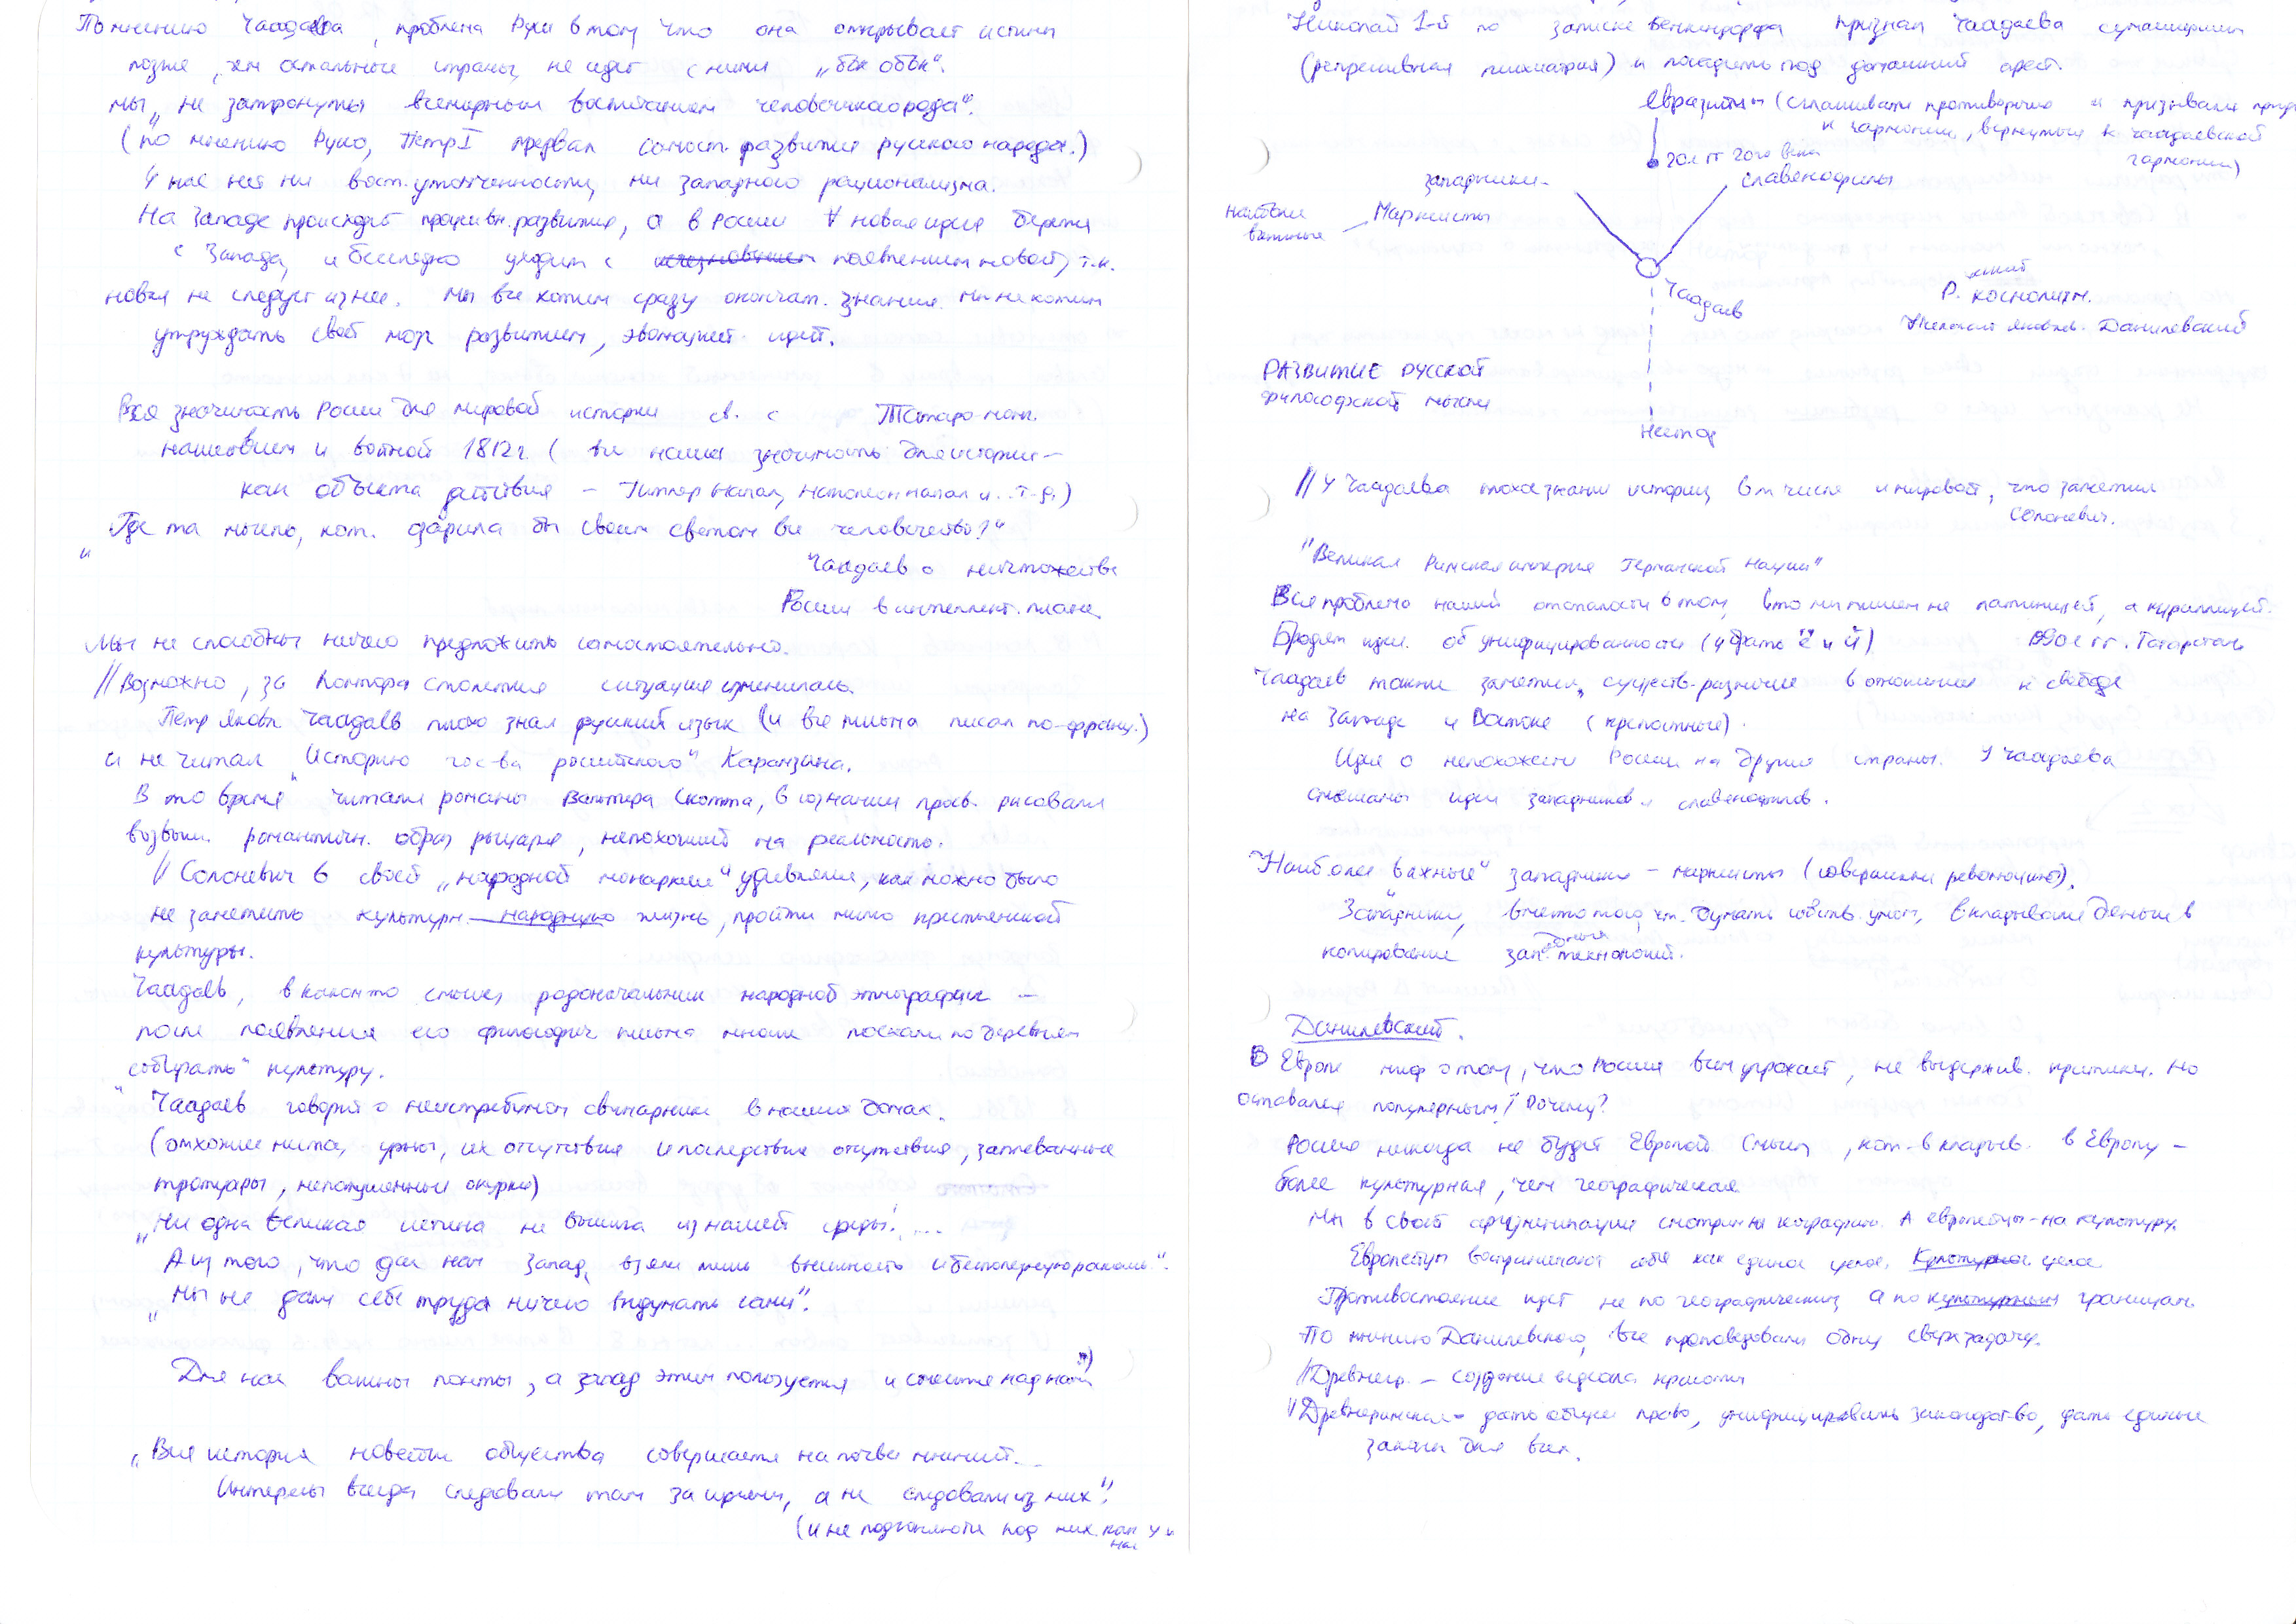 По мнению Чаадаева, проблема Руси в том, что она открывает истины
позже, чем остальные страны, не идёт с ними „бок о бок“.
мы „не затронуты всемирным воспитанием человеческого рода“.
(по мнению Руссо, Пётр I прервал самост. развитие русского народа.)
У нас нет ни вост. утонченности, ни западного рационализма.
На Западе происходит прогрессивн. развитие, а в России ∀ новая идея берется
с Запада, и бесследно уходит с исчезновением появлением новой, т.к.
новая не следует из нее. Мы все хотим сразу окончат. знание. Мы не хотим
утруждать свой мозг развитием, эволюцией идей.
Вся значимость России для мировой истории св. с Татаро-монг.
нашествием и войной 1812 г. (вся наша значимость для истории –
как объекта действия – Гитлер напал, Наполеон напал и т.д.)
„Где та мысль, кот. озарила бы своим светом все человечество?“
Чаадаев о ничтожестве
России в интеллект. плане
Мы не способны ничего предложить самостоятельно.
// Возможно, за полтора столетия ситуация изменилась.
Петр Яковл. Чаадаев плохо знал русский язык (и все письма писал по-франц.)
и не читал „Историю гос-ва российского“ Карамзина.
В то время читали романы Вальтера Скотта, в сознании просв. рисовали
возвыш. романтичн. образ рыцаря, непохожий на реальность.
// Солоневич в своей „народной монархии“ удивлялся, как можно было
не заметить культурн. народную жизнь, пройти мимо крестьянской
культуры.
Чаадаев, в каком-то смысле, родоначальник народной этнографии –
после появления его философич. письма многие поехали по деревням
„собирать“ культуру.
Чаадаев говорит о неистребимом свинарнике в наших домах.
(отхожие места, урны, их отсутствие и последствия отсутствия, заплеванные
тротуары, непотушенные окурки)
„Ни одна великая истина не вышла из нашей среды!....
А из того, что дал нам Запад, взяли лишь внешность и бесполезную роскошь“.
„Мы не дали себе труда ничего выдумать сами“.
Для нас важны понты, а запад этим пользуется и смеется над нами
„Вся история новейш. общества совершается на почве мнений...
Интересы всегда следовали там за идеями, а не следовали из них“.
(и не подгонялись под них, как у нас
Николай 1-й по записке Бенкендорфа признал Чаадаева сумасшедшим
(репрессивная психиатрия) и посадить под домашний арест.
Евразийцы (сглаживали противоречие и призывали прид
к гармонии, вернуться к чаадаевской
гармонии)
20е гг 20го века
западники
славянофилы
Марксисты
наиболее
важные
Чаадаев
Р. космолизм.
Николай Яковлев. Данилевский
РАЗВИТИЕ РУССКОЙ
философской мысли
Нестор
// У Чаадаева плохое знание истории, в т.ч. и мировой, что заметил
Солоневич.
"Великая Римская империя Германской Нации"
Вся проблема нашей отсталости в том, что мы пишем не латиницей, а кириллицей.
Бродят идеи об унифицированности (убрать ё и й) 1990е гг. Татарстан
Чаадаев также заметил, существ. различие в отношении к свободе
на Западе и Востоке (крепостные).
Идея о непохожести России на другие страны. У Чаадаева
смешаны идеи западников и славянофилов.
"Наиболее важные" западники – марксисты (совершили революцию).
Западники, вместо того, чт. думать собств. умом, вкладывали деньги в
копирование западных технологий.
Данилевский.
В Европе миф о том, что Россия всем угрожает, не выдержив. критики. Но
оставался популярным! Почему?
Россия никогда не будет Европой. Смысл, кот. вкладыв. в Европу –
более культурная, чем географическая.
Мы в своей аргументации смотрим на географию. А европейцы – на культуру.
Европейцы воспринимают себя как единое целое. Культурное целое.
Противостояние идет не по географическим, а по культурным границам.
По мнению Данилевского, все проповедовали одну сверхзадачу.
// Древнегр. – создание идеала красоты
// Древнеримская – дать общее право, унифицировать законодательство, дать единые
законы для всех.